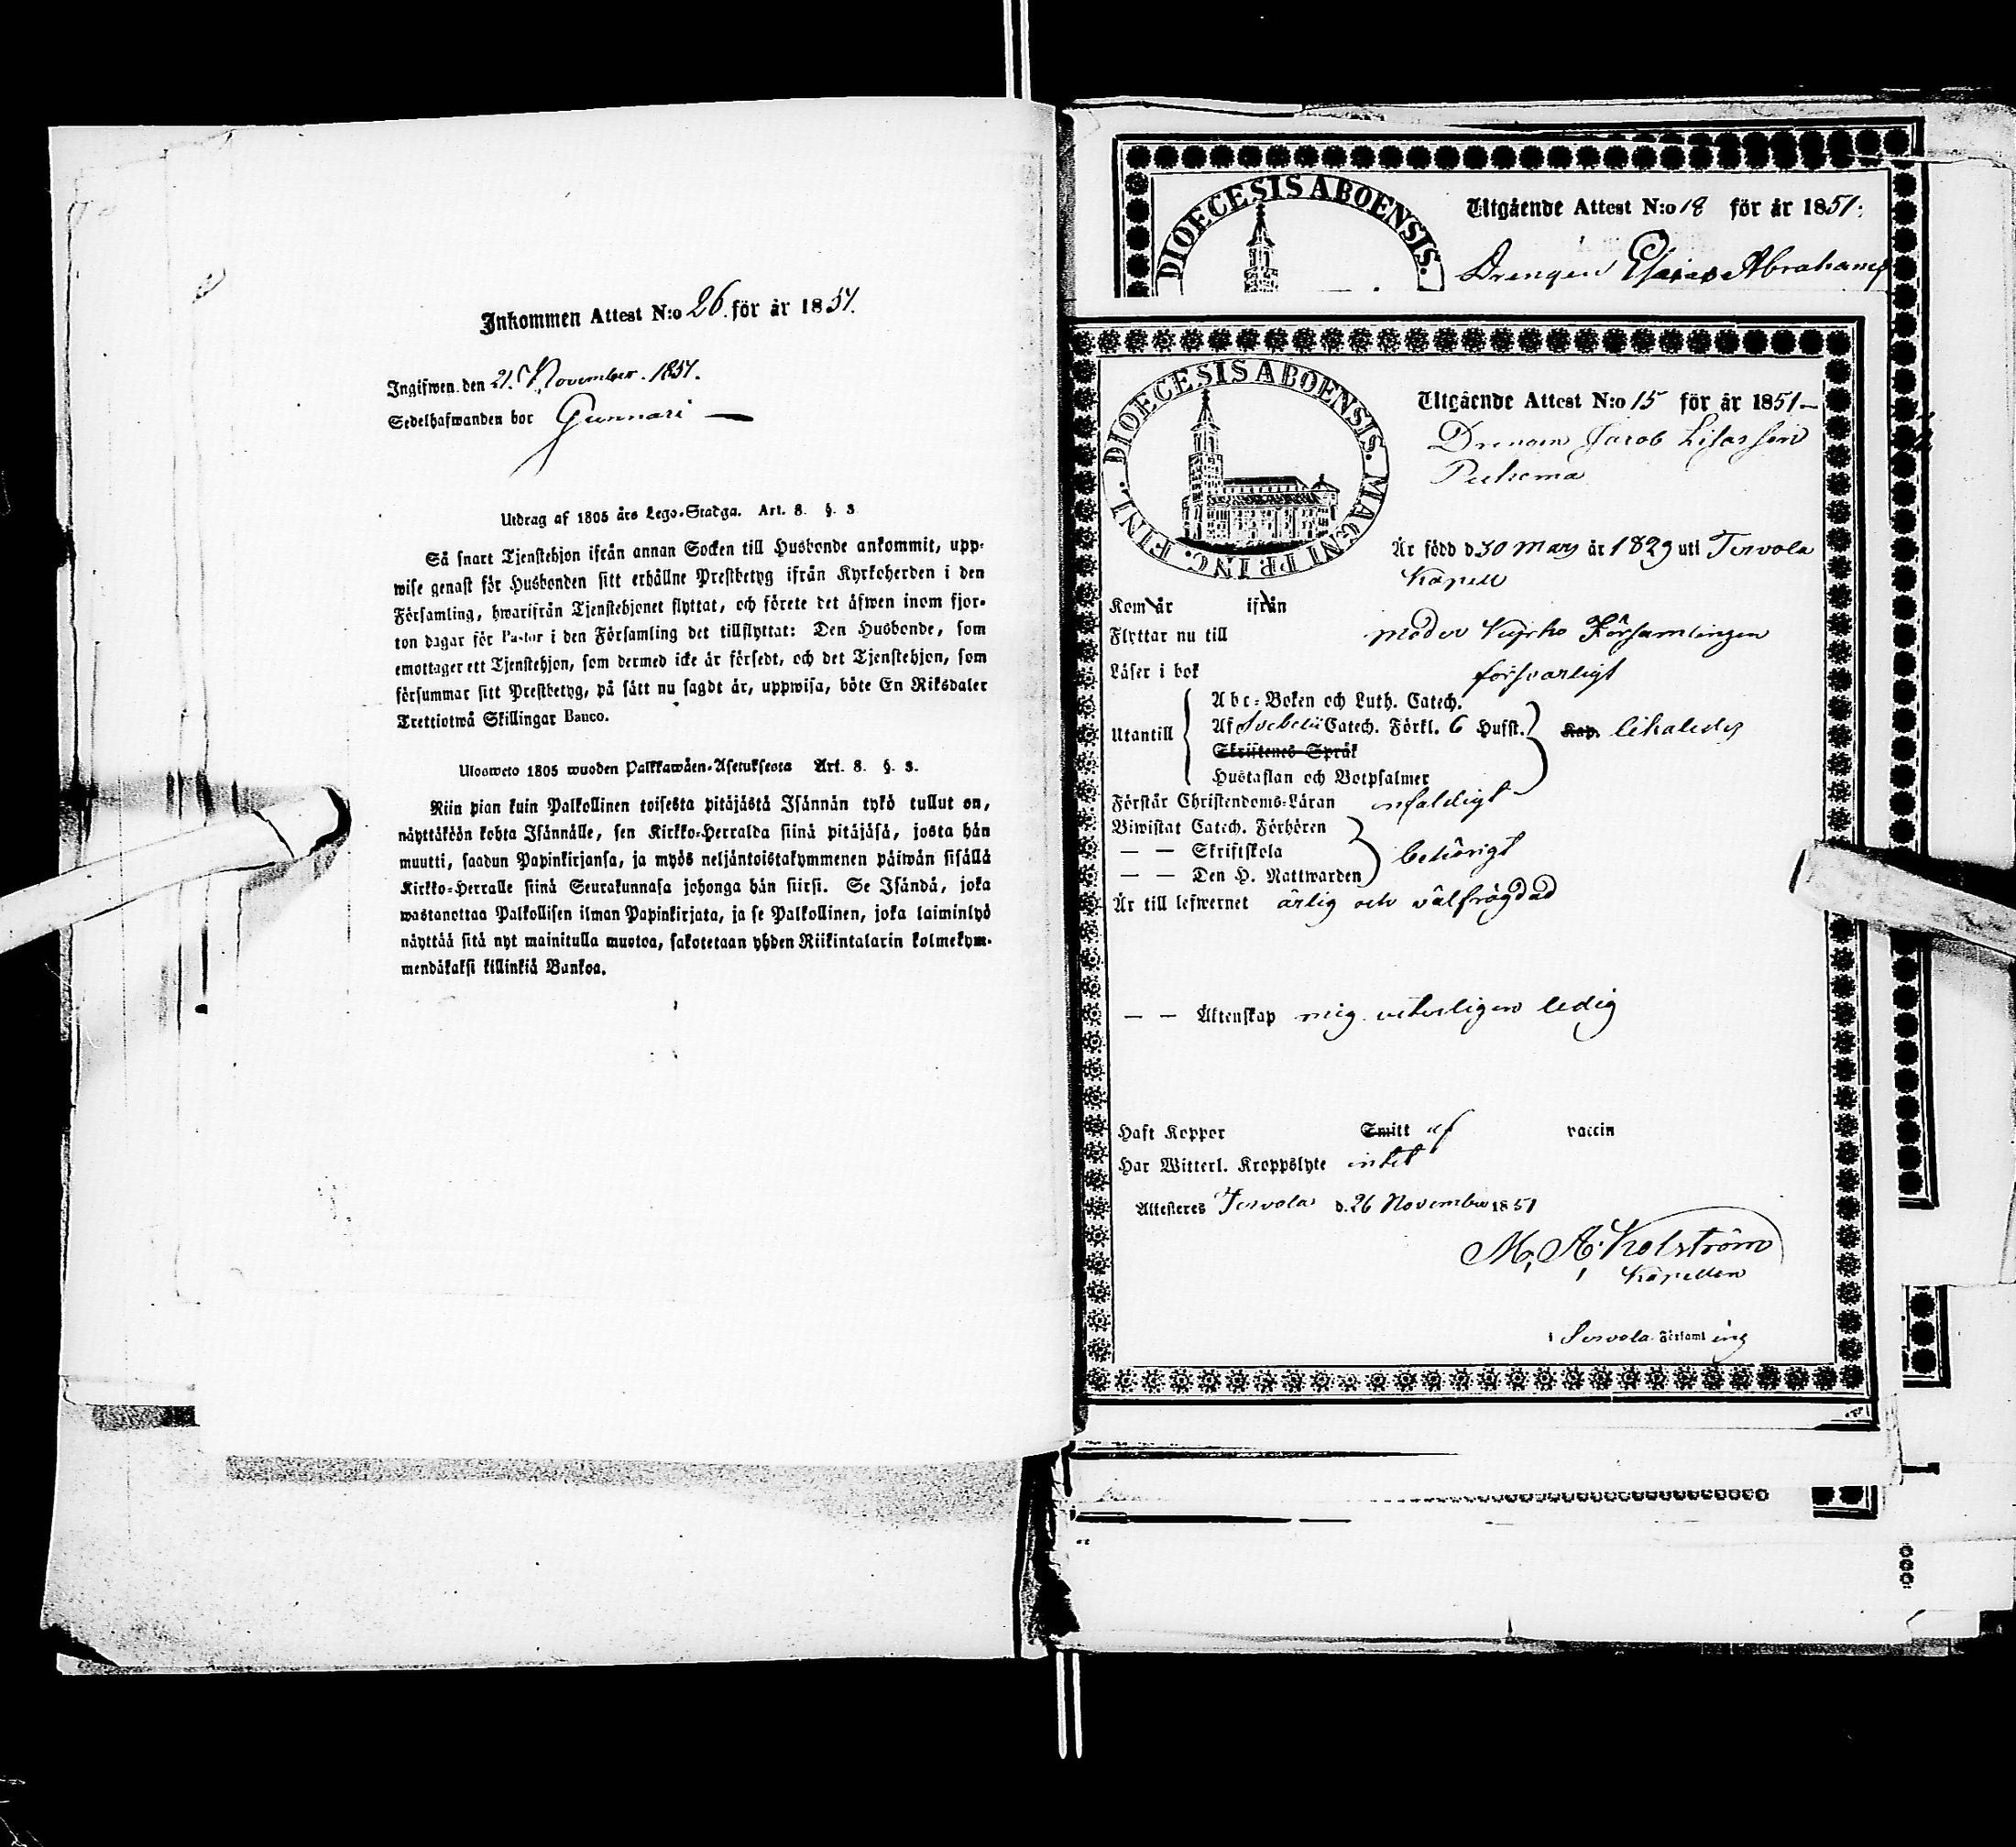 Inkommen Attest N:o 26. för år 1851.
Ingifwen den 21. November. 1851.
Sedelhafwanden bor Gunnari —
Utdrag af 1805 års Lego-Stadga. Art. 8. §. 3
Så snart Tjenstehjon ifrån annan Socken till Husbonde ankommit, upp-
wise genast för Husbonden sitt erhållne Prestbetyg ifrån Kyrkoherden i den
Församling, hwarifrån Tjenstehjonet flyttat, och förete det äfwen inom fjor-
ton dagar för Pastor i den Församling det tillflyttat: Den Husbonde, som
emottager ett Tjenstehjon, som dermed icke är försedt, och det Tjenstehjon, som
försummar sitt Prestbetyg, på sätt nu sagdt är, uppwisa, böte En Riksdaler
Trettiotwå Skillingar Banco.
Ulosweto 1805 wuoden Palkkawäen-Asetuksesta Art. 8. §. 3.
Niin pian kuin Palkollinen toisesta pitäjästä Isännän tykö tullut on,
näyttäköön kohta Isännälle, sen Kirkko-Herralda siinä pitäjäsä, josta hän
muutti, saadun Papinkirjansa, ja myös neljäntoistakymmenen päiwän sisällä
Kirkko-Herralle siinä Seurakunnasa johonga hän siirsi. Se Isändä, joka
wastanottaa Palkollisen ilman Papinkirjata, ja se Palkollinen, joka laiminlyö
näyttää sitä nyt mainitulla muotoa, sakotetaan yhden Riikintalarin kolmekym-
mendäkaksi killinkiä Bankoa.
DIOECESIS ABOENSIS.
Utgående Attest N:o 18 för år 1851.
Drengen Esaias Abrahams
DIOECESIS ABOENSIS. MAGNI PRINC. FINL.
Utgående Attest N:o 15 för år 1851 —
Drengen Jacob Lisasson
Är född d 30 Mars år 1829 uti Tervola
Kapell
Kom år ifrån
Flyttar nu till moder Kyrko Församlingen
Läser i bok försvarligt
Abc-Boken och Luth. Catech.
Utantill Af Svebelii Catech. Förkl. 6 Hufst. Kap. likaledes
Skriftenes Språk
Hustaflan och Botpsalmer
Förstår Christendoms-Läran enfaldigt
Biwistat Catech. Förhören
— — Skriftskola behörigt
— — Den H. Nattwarden
Är till lefwernet ärlig och välfrägdad
— — Äktenskap mig veterligen ledig
Haft Koppor Smitt af vaccin
Har Witterl. Kroppslyte intet
Attesteres Tervola d. 26 November 1851
M. A. Holström
Kapellan
i Tervola Församling